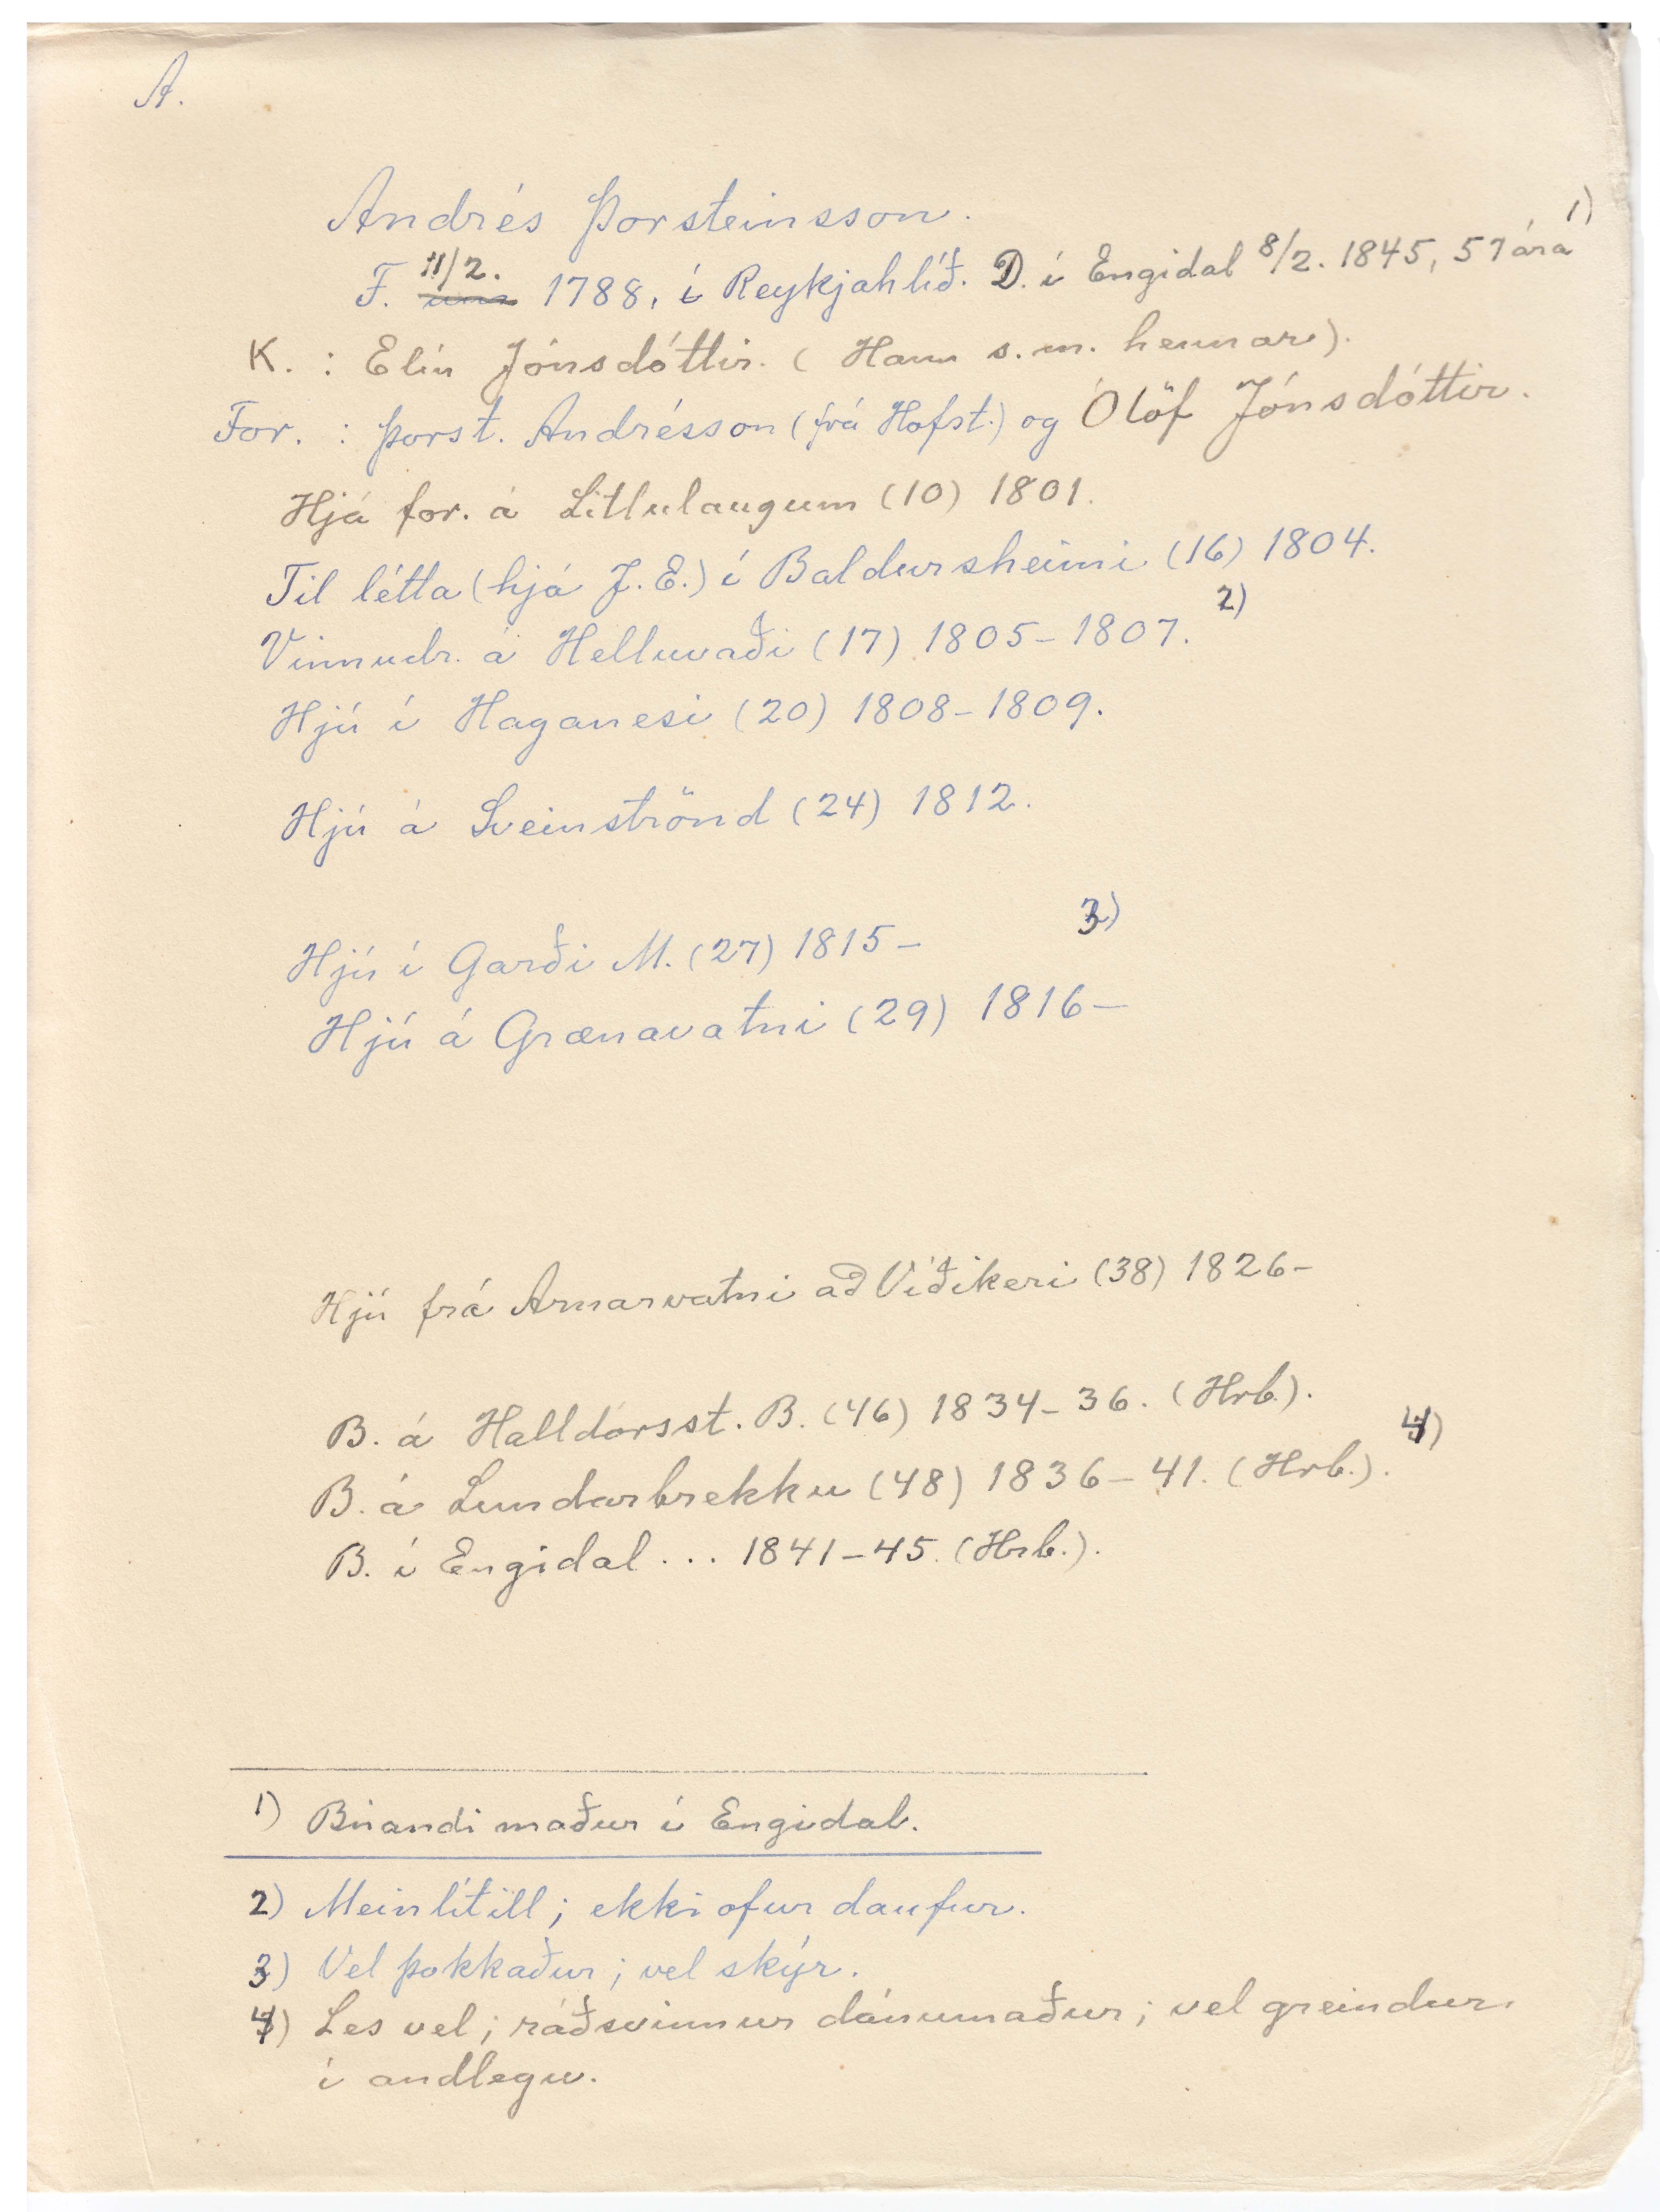 A.
Andrés Þorsteinsson.
F. 11/2. 1788, í Reykjahlíð. D. í Engidal 8/2. 1845, 57 ára 1)
K. : Elín Jónsdóttir. ( Hann s. m. hennar).
For. : Þorst. Andrésson (frá Hofst.) og Ólöf Jónsdóttir.
Hjá for. á Litlulaugum (10) 1801.
Til létta (hjá J. E.) í Baldursheimi (16) 1804.
Vinnudr. á Helluvaði (17) 1805-1807. 2)
Hjú í Haganesi (20) 1808-1809.
Hjú á Sveinströnd (24) 1812.
Hjú í Garði M. (27) 1815- 3)
Hjú á Grænavatni (29) 1816-
Hjú frá Arnarvatni að Víðikeri (38) 1826-
B. á Halldórsst. B. (46) 1834-36. (Hrb.).
B. á Lundarbrekku (48) 1836-41. (Hrb.). 4)
B. í Engidal ... 1841-45. (Hrb.).
1) Búandi maður í Engidal.
2) Meinlítill; ekki ofur daufur.
3) Vel þokkaður; vel skýr.
4) Les vel; ráðsvinnur dánumaður; vel greindur.
í andlegu.